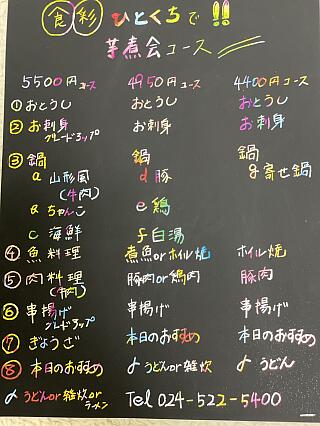 食彩 ひとくちで!!
芋煮会コース
5500円コース 4950円コース 4400円コース
①おとうし おとうし おとうし
②お刺身 グレードアップ お刺身 お刺身
③鍋 鍋 鍋
a 山形風 (牛肉) d 豚 g 寄せ鍋
b ちゃんこ e 鶏
c 海鮮 f 白湯
④魚料理 煮魚orホイル焼 ホイル焼
⑤肉料理 (牛肉) 豚肉or鶏肉 豚肉
⑥串揚げ グレードアップ 串揚げ 串揚げ
⑦ぎょうざ 本日のおすすめ 本日のおすすめ
⑧本日のおすすめ 〆うどんor雑炊 〆うどん
〆うどんor雑炊orラーメン Tel 024-522-5400